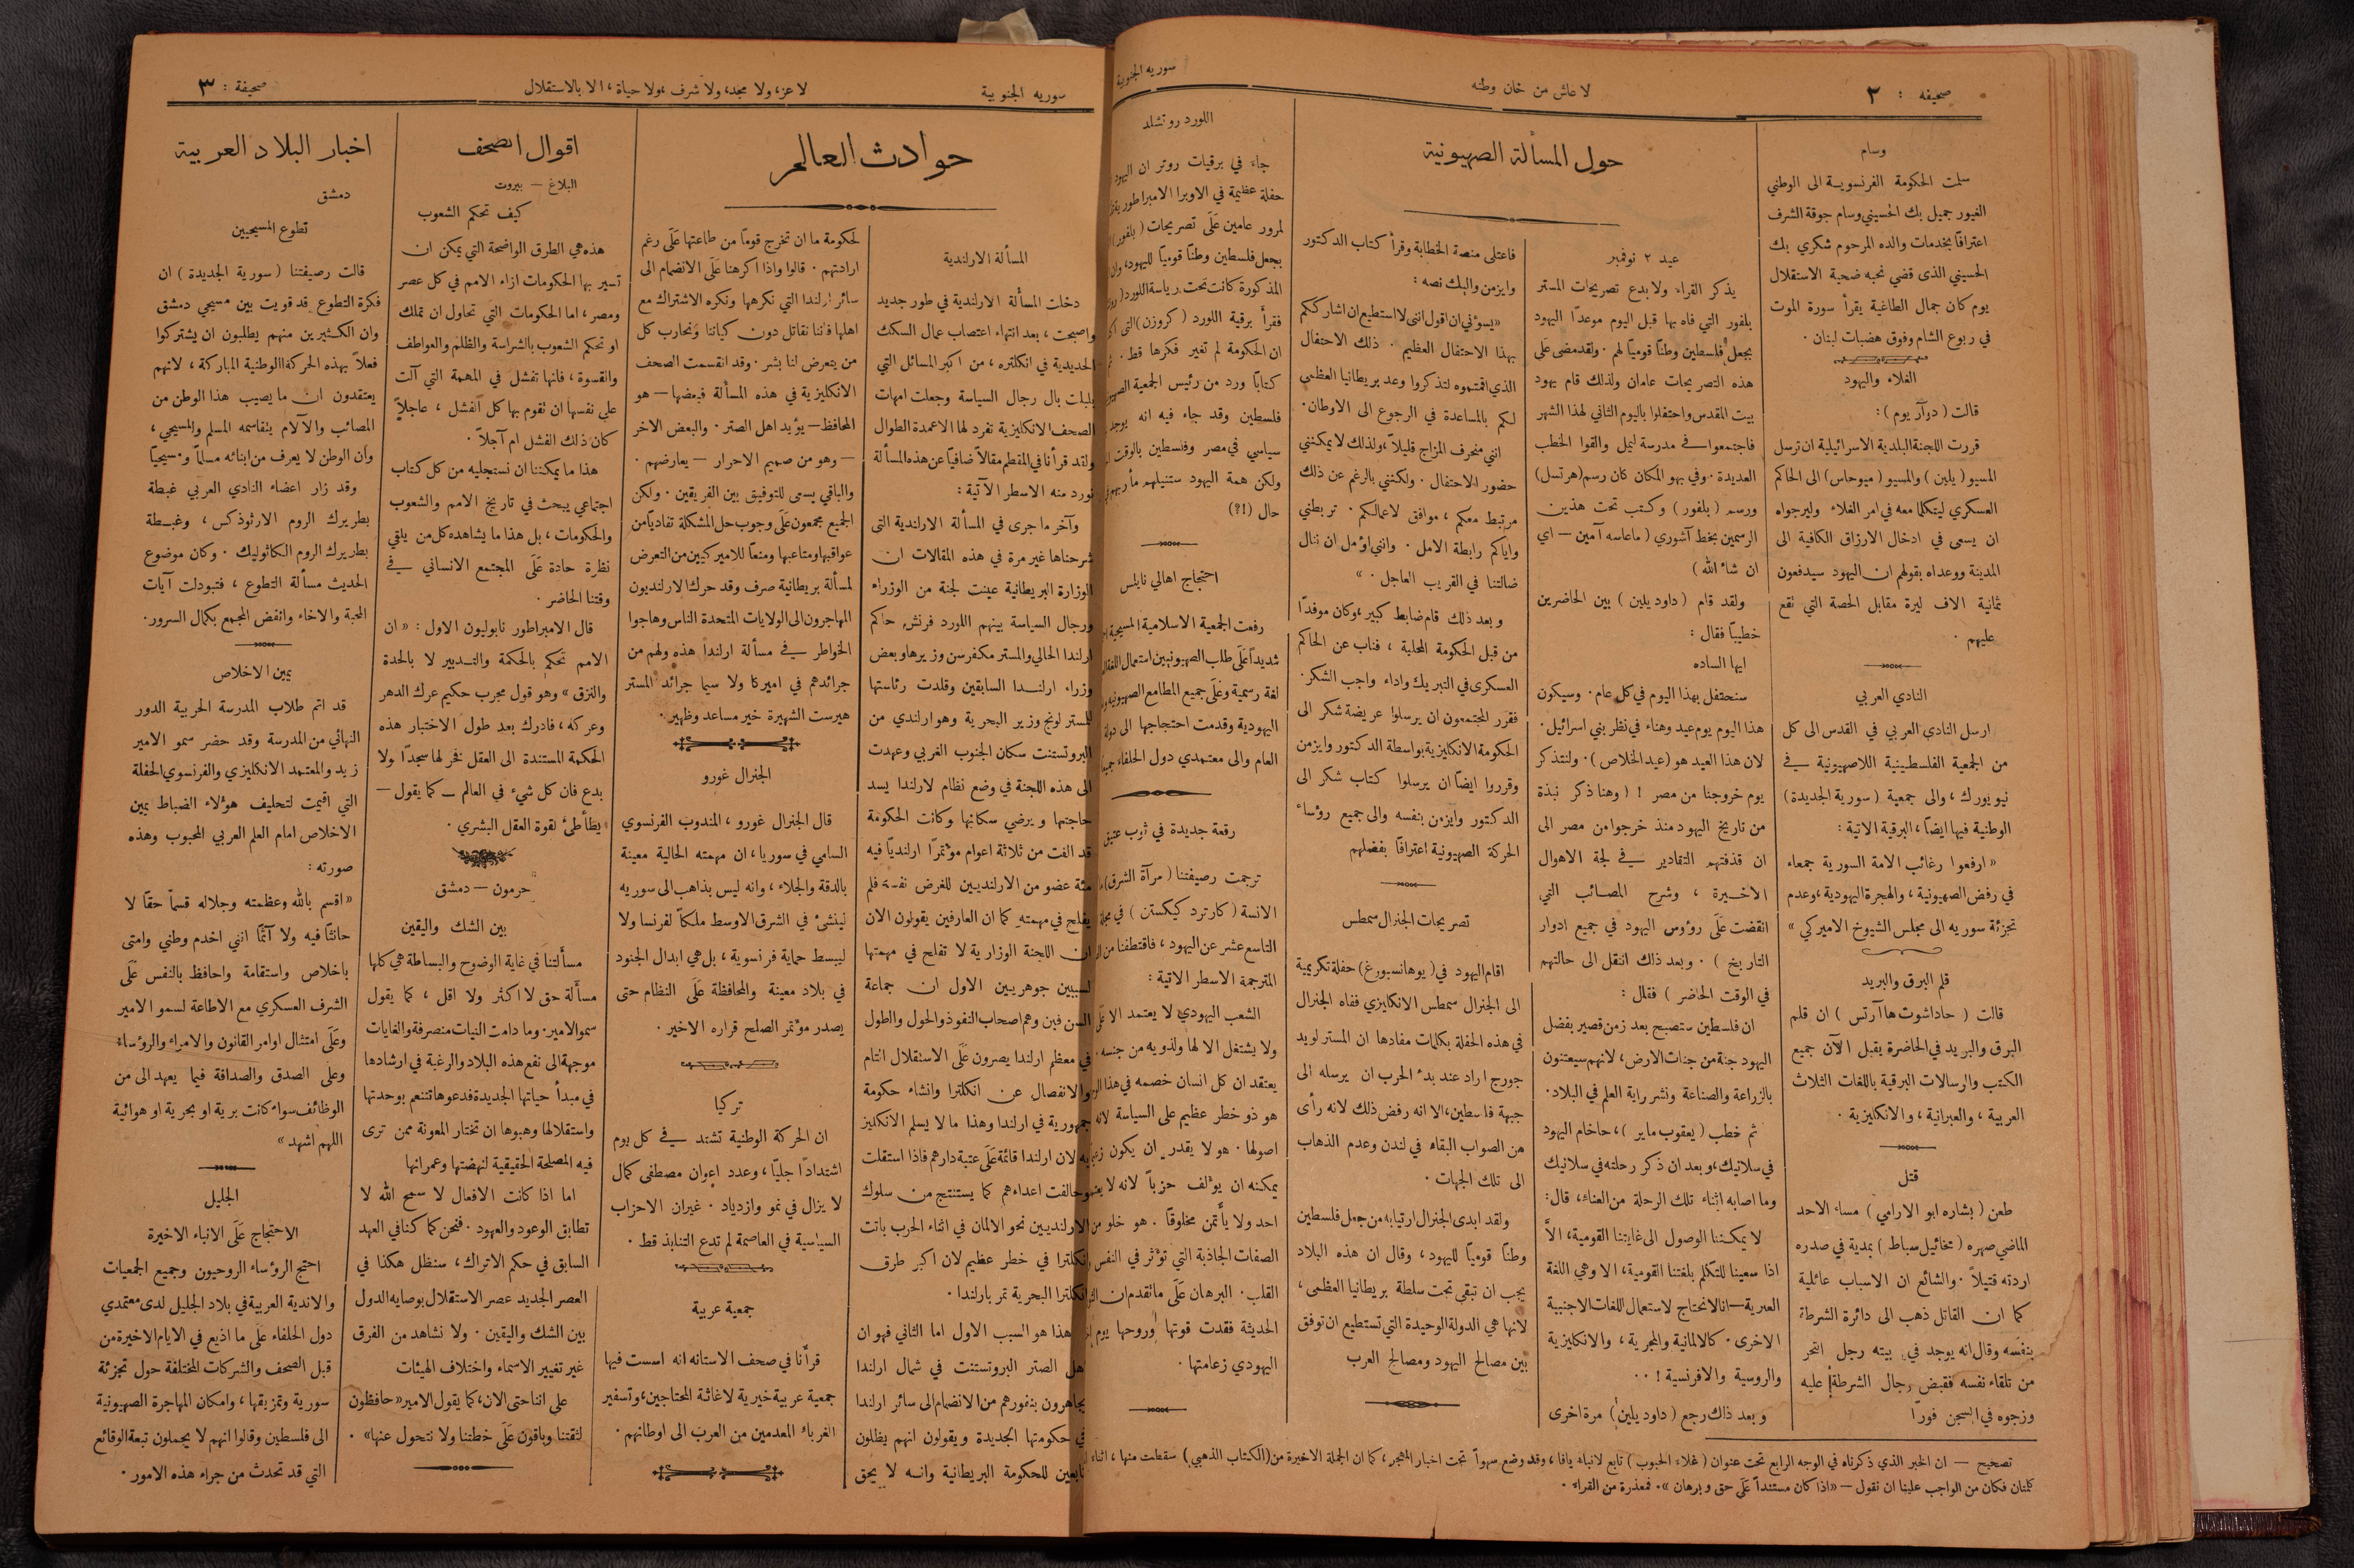 صحيفه : ٢
لا عاش من خان وطنه
سوريه الجنوبية
وسام
سلمت الحكومة الفرنسوية الى الوطني
الغيور جميل بك الحسيني وسام جوقة الشرف
اعترافاً بخدمات والده المرحوم شكري بك
الحسيني الذى قضي نحبه ضحية الاستقلال
يوم كان جمال الطاغية يقرأ سورة الموت
في ربوع الشام وفوق هضبات لبنان .
الغلاء واليهود
قالت ( دوآر يوم ) :
قررت اللجنة البلدية الاسرائيلية ان ترسل
المسيو ( يلين ) والمسيو ( ميوحاس ) الى الحاكم
العسكري ليتكلما معه في امر الغلاء وليرجواه
ان يسعى في ادخال الارزاق الكافية الى
المدينة ووعداه بقولهم ان اليهود سيدفعون
ثمانية الاف ليرة مقابل الحصة التي تقع
عليهم .
النادي العربي
ارسل النادي العربي في القدس الى كل
من الجمعية الفلسطينية اللاصهيونية في
نيويورك ، والى جمعية ( سورية الجديدة )
الوطنية فيها ايضاً ، البرقية الاتية :
« ارفعوا رغائب الامة السورية جمعاء
في رفض الصهيونية ، والهجرة اليهودية ، وعدم
تجزئة سوريه الى مجلس الشيوخ الاميركي »
قلم البرق والبريد
قالت ( حاداشوت ها آرتس ) ان قلم
البرق والبريد في الحاضرة يقبل الآن جميع
الكتب والرسالات البرقية باللغات الثلاث
العربية ، والعبرانية ، والانكليزية .
قتل
طعن ( بشاره ابو الارامي ) مساء الاحد
الماضي صهره ( مخائيل سباط ) بمدية في صدره
اردته قتيلاً . والشائع ان الاسباب عائلية
كما ان القاتل ذهب الى دائرة الشرطة
بنفسه وقال انه يوجد في بيته رجل انتحر
من تلقاء نفسه فقبض رجال الشرطة عليه
وزجوه في السجن فوراً
حول المسألة الصهيونية
عيد ٢ نوفمبر
يذكر القراء ولا بدع تصريحات المستر
بلفور التي فاه بها قبل اليوم موعداً اليهود
بجعل فلسطين وطناً قومياً لهم . ولقد مضى على
هذه التصريحات عامان ولذلك قام يهود
بيت المقدس واحتفلوا باليوم الثاني لهذا الشهر
فاجتمعوا في مدرسة ليمل والقوا الخطب
العديدة . وفي بهو المكان كان رسم ( هرتسل )
ورسم ( بلفور ) وكتب تحت هذين
الرسمين بخط آشوري ( ماعاسه آمين — اي
ان شاء الله )
ولقد قام ( داود يلين ) بين الحاضرين
خطيباً فقال :
ايها الساده
سنحتفل بهذا اليوم في كل عام . وسيكون
هذا اليوم يوم عيد وهناء في نظر بني اسرائيل .
لان هذا العيد هو ( عيد الخلاص ) . ولنتذكر
يوم خروجنا من مصر ! ( وهنا ذكر نبذة
من تاريخ اليهود منذ خرجوا من مصر الى
ان قذفتهم التقادير في لجة الاهوال
الاخيرة ، وشرح المصائب التي
انقضت على رؤوس اليهود في جميع ادوار
التاريخ ) . وبعد ذلك انتقل الى حالتهم
في الوقت الحاضر ) فقال :
ان فلسطين ستصبح بعد زمن قصير بفضل
اليهود جنة من جنات الارض ، لانهم سيعتنون
بالزراعة والصناعة ونشر راية العلم في البلاد .
ثم خطب ( يعقوب ماير ) ، حاخام اليهود
في سلانيك ، وبعد ان ذكر رحلته في سلانيك
وما اصابه اثناء تلك الرحلة من العناء ، قال :
لا يمكننا الوصول الى غايتنا القومية ، الاَّ
اذا سعينا للتكلم بلغتنا القومية ، الا وهي اللغة
العبرية — اننا لا نحتاج لاستعمال اللغات الاجنبية
الاخرى . كالالمانية والمجرية ، والانكليزية
والروسية والافرنسية ! . .
وبعد ذاك رجع ( داود يلين ) مرة اخرى
فاعتلى منصة الخطابة وقرأ كتاب الدكتور
وايزمن واليك نصه :
« يسؤني ان اقول انني لا استطيع ان اشارككم
بهذا الاحتفال العظيم . ذلك الاحتفال
الذي اقمتموه لتذكروا وعد بريطانيا العظمى
لكم بالمساعدة في الرجوع الى الاوطان .
انني منحرف المزاج قليلاً ، ولذلك لا يمكنني
حضور الاحتفال . ولكنني بالرغم عن ذلك
مرتبط معكم ، موافق لاعمالكم . تربطني
واياكم رابطة الامل . وانني اؤمل ان ننال
ضالتنا في القريب العاجل . »
وبعد ذلك قام ضابط كبير ، وكان موفداً
من قبل الحكومة المحلية ، فناب عن الحاكم
العسكرى في التبريك واداء واجب الشكر .
فقرر المجتمعون ان يرسلوا عريضة شكر الى
الحكومة الانكليزية بواسطة الدكتور وايزمن
وقرروا ايضاً ان يرسلوا كتاب شكر الى
الدكتور وايزمن بنفسه والى جميع رؤساء
الحركة الصهيونية اعترافاً بفضلهم
تصريحات الجنرال سمطس
اقام اليهود في ( يوهانسبورغ ) حفلة تكريمية
الى الجنرال سمطس الانكليزي ففاه الجنرال
في هذه الحفلة بكلمات مفادها ان المستر لويد
جورج اراد عند بدء الحرب ان يرسله الى
جبهة فلسطين ، الا انه رفض ذلك لانه رأى
من الصواب البقاء في لندن وعدم الذهاب
الى تلك الجهات .
ولقد ابدى الجنرال ارتيابه من جعل فلسطين
وطناً قومياً لليهود ، وقال ان هذه البلاد
يجب ان تبقى تحت سلطة بريطانيا العظمى ،
لانها هي الدولة الوحيدة التي تستطيع ان توفق
بين مصالح اليهود ومصالح العرب
اللورد روتشلد
جاء في برقيات روتر ان اليهود
حفلة عظيمة في الاوبرا الامبراطورية
لمرور عامين على تصريحات ( بلفور )
بجعل فلسطين وطناً قومياً لليهود ، وان
المذكورة كانت تحت رياسة اللورد
فقرأ برقية اللورد ( كروزن ) التي
ان الحكومة لم تغير فكرها قط .
كتاباً ورد من رئيس الجمعية
فلسطين وقد جاء فيه انه يوجد
سياسي في مصر وفلسطين بالوقت
ولكن همة اليهود ستنيلهم مأربهم
حال (!؟)
احتجاج اهالي نابلس
رفعت الجمعية الاسلامية المسيحية
شديداً على طلب الصهيونيين استعمال اللغة
لغة رسمية وعلى جميع المطامع الصهيونيه
اليهودية وقدمت احتجاجها الى دولة
العام والى معتمدي دول الحلفاء
رقعة جديدة في ثوب عتيق
ترجمت رصيفتنا ( مرآة الشرق )
الانسة ( كارترد كيكستن ) في مجلة
التاسع عشر عن اليهود ، فاقتطفنا من
المترجمة الاسطر الاتية :
الشعب اليهودي لا يعتمد الا على
ولا يشتغل الا لها ولذويه من جنسه .
يعتقد ان كل انسان خصمه في هذا
هو ذو خطر عظيم على السياسة لانه
اصولها . هو لا يقدر ان يكون
يمكنه ان يؤلف حزباً لانه لا
احد ولا يأتمن مخلوقاً . هو خلو من
الصفات الجاذبة التي تؤثر في النفس
القلب . البرهان على ماتقدم ان
الحديثة فقدت قوتها وروحها يوم
اليهودي زعامتها .
تصحيح — ان الخبر الذي ذكرناه في الوجه الرابع تحت عنوان ( غلاء الحبوب ) تابع لانباء يافا ، وقد وضع سهواً تحت اخبار المهجر ، كما ان الجملة الاخيرة من ( الكتاب الذهبي ) سقطت منها ، اثناء
كلمتان فكان من الواجب علينا ان نقول — « اذا كان مستنداً على حق وبرهان » . فمعذرة من القراء .
سوريه الجنوبية
لا عز ، ولا مجد ، ولا شرف ، ولا حياة ، الا بالاستقلال
صحيفة : ٣
حوادث العالم
المسألة الارلندية
دخلت المسألة الارلندية في طور جديد
واصبحت ، بعد انتهاء اعتصاب عمال السكك
الحديدية في انكلتره ، من اكبر المسائل التي
بلبلت بال رجال السياسة وجعلت امهات
الصحف الانكليزية تفرد لها الاعمدة الطوال
ولقد قرأنا في المقطم مقالاً ضافياً عن هذه المسألة
نورد منه الاسطر الآتية :
وآخر ما جرى في المسألة الارلندية التى
شرحناها غير مرة في هذه المقالات ان
الوزارة البريطانية عينت لجنة من الوزراء
ورجال السياسة بينهم اللورد فرنش حاكم
ارلندا الحالي والمستر مكفرسن وزيرها وبعض
وزراء ارلندا السابقين وقلدت رئاستها
للمستر لونج وزير البحرية وهو ارلندي من
البروتستنت سكان الجنوب الغربي وعهدت
الى هذه اللجنة في وضع نظام لارلندا يسد
حاجتها ويرضي سكانها وكانت الحكومة
قد الفت من ثلاثة اعوام مؤتمراً ارلندياً فيه
مئة عضو من الارلنديين للغرض نفسه فلم
يفلح في مهمته كما ان العارفين يقولون الان
ان اللجنة الوزارية لا تفلح في مهمتها
لسببين جوهريين الاول ان جماعة
السن فين وهم اصحاب النفوذ والحول والطول
في معظم ارلندا يصرون على الاستقلال التام
والانفصال عن انكلترا وانشاء حكومة
جمهورية في ارلندا وهذا ما لا يسلم الانكليز
به لان ارلندا قائمة على عتبة دارهم فاذا استقلت
وحالفت اعداءهم كما يستنتج من سلوك
الارلنديين نحو الالمان في اثناء الحرب باتت
انكلترا في خطر عظيم لان اكبر طرق
انكلترا البحرية تمر بارلندا .
هذا هو السبب الاول اما الثاني فهو ان
اهل الصتر البروتستنت في شمال ارلندا
يجاهرون بنفورهم من الانضمام الى سائر ارلندا
في حكومتها الجديدة ويقولون انهم يظلون
تابعين للحكومة البريطانية وانه لا يحق
لحكومة ما ان تخرج قوماً من طاعتها على رغم
ارادتهم . قالوا واذا اكرهنا على الانضمام الى
سائر ارلندا التي نكرهها ونكره الاشتراك مع
اهلها فاننا نقاتل دون كياننا ونحارب كل
من يتعرض لنا بشر . وقد انقسمت الصحف
الانكليزية في هذه المسألة فبعضها — هو
المحافظ — يؤيد اهل الصتر . والبعض الاخر
— وهو من صميم الاحرار — يعارضهم .
والباقي يسعى للتوفيق بين الفريقين . ولكن
الجميع مجمعون على وجوب حل المشكلة تفادياً من
عواقبها ومتاعبها ومنعاً للاميركيين من التعرض
لمسألة بريطانية صرف وقد حرك الارلنديون
المهاجرون الى الولايات المتحدة الناس وهاجوا
الخواطر في مسألة ارلندا هذه ولهم من
جرائدهم في اميركا ولا سيما جرائد المستر
هيرست الشهيرة خير مساعد وظهير .
الجنرال غورو
قال الجنرال غورو ، المندوب الفرنسوي
السامي في سوريا ، ان مهمته الحالية معينة
بالدقة والجلاء ، وانه ليس بذاهب الى سوريه
لينشئ في الشرق الاوسط ملكاً لفرنسا ولا
ليبسط حماية فرنسوية ، بل هي ابدال الجنود
في بلاد معينة والمحافظة على النظام حتى
يصدر مؤتمر الصلح قراره الاخير .
تركيا
ان الحركة الوطنية تشتد في كل يوم
اشتداداً جلياً ، وعدد اعوان مصطفى كمال
لا يزال في نمو وازدياد . غير ان الاحزاب
السياسية في العاصمة لم تدع التنابذ قط .
جمعية عربية
قرأنا في صحف الاستانه انه اسست فيها
جمعية عربية خيرية لاغاثة المحتاجين ، وتسفير
الغرباء المعدمين من العرب الى اوطانهم .
اقوال الصحف
البلاغ — بيروت
كيف تحكم الشعوب
هذه هي الطرق الواضحة التي يمكن ان
تسير بها الحكومات ازاء الامم في كل عصر
ومصر ، اما الحكومات التي تحاول ان تملك
او تحكم الشعوب بالشراسة والظلم والعواطف
والقسوة ، فانها تفشل في المهمة التي آلت
على نفسها ان تقوم بها كل الفشل ، عاجلاً
كان ذلك الفشل ام آجلاً .
هذا ما يمكننا ان نستجليه من كل كتاب
اجتماعي يبحث في تاريخ الامم والشعوب
والحكومات ، بل هذا ما يشاهده كل من يلقي
نظرة حادة على المجتمع الانساني في
وقتنا الحاضر .
قال الامبراطور نابوليون الاول : « ان
الامم تحكم بالحكمة والتدبير لا بالحدة
والنزق » وهو قول مجرب حكيم عرك الدهر
وعركه ، فادرك بعد طول الاختبار هذه
الحكمة المستندة الى العقل فخر لها سجداً ولا
بدع فان كل شيء في العالم — كما يقول —
يطأطئ لقوة العقل البشري .
حرمون — دمشق
بين الشك واليقين
مسألتنا في غاية الوضوح والبساطة هي كلها
مسألة حق لا اكثر ولا اقل ، كما يقول
سمو الامير . وما دامت النيات منصرفة والغايات
موجهة الى نفع هذه البلاد والرغبة في ارشادها
في مبدأ حياتها الجديدة فدعوها تتنعم بوحدتها
واستقلالها وهبوها ان تختار المعونة ممن ترى
فيه المصلحة الحقيقية لنهضتها وعمرانها
اما اذا كانت الافعال لا سمح الله لا
تطابق الوعود والعهود . فنحن كما كنا في العهد
السابق في حكم الاتراك ، سنظل هكذا في
العصر الجديد عصر الاستقلال بوصايه الدول
بين الشك واليقين . ولا نشاهد من الفرق
غير تغيير الاسماء واختلاف الهيئات
على اننا حتى الان ، كما يقول الامير « حافظون
لثقتنا وباقون على خطتنا ولا نتحول عنها » .
اخبار البلاد العربية
دمشق
تطوع المسيحيين
قالت رصيفتنا ( سورية الجديدة ) ان
فكرة التطوع قد قويت بين مسيحي دمشق
وان الكثيرين منهم يطلبون ان يشتركوا
فعلاً بهذه الحركة الوطنية المباركة ، لانهم
يعتقدون ان ما يصيب هذا الوطن من
المصائب والآلام يتقاسمه المسلم والمسيحي ،
وان الوطن لا يعرف من ابنائه مسلماً ومسيحياً
وقد زار اعضاء النادي العربي غبطة
بطريرك الروم الارثوذكس ، وغبطة
بطريرك الروم الكاثوليك . وكان موضوع
الحديث مسألة التطوع ، فتبودلت آيات
المحبة والاخاء وانفض المجمع بكمال السرور .
يمين الاخلاص
قد اتم طلاب المدرسة الحربية الدور
النهائي من المدرسة وقد حضر سمو الامير
زيد والمعتمد الانكليزي والفرنسوي الحفلة
التي اقيمت لتحليف هؤلاء الضباط يمين
الاخلاص امام العلم العربي المحبوب وهذه
صورته :
« اقسم بالله وعظمته وجلاله قسماً حقاً لا
حانثاً فيه ولا آثماً انني اخدم وطني وامتي
باخلاص واستقامة واحافظ بالنفس على
الشرف العسكري مع الاطاعة لسمو الامير
وعلى امتثال اوامر القانون والامراء والرؤساء
وعلى الصدق والصداقة فيما يعهد الى من
الوظائف سواء كانت برية او بحرية او هوائية
اللهم اشهد »
الجليل
الاحتجاج على الانباء الاخيرة
احتج الرؤساء الروحيون وجميع الجمعيات
والاندية العربية في بلاد الجليل لدى معتمدي
دول الحلفاء على ما اذيع في الايام الاخيرة من
قبل الصحف والشركات المختلفة حول تجزئة
سورية وتمزيقها ، وامكان المهاجرة الصهيونية
الى فلسطين وقالوا انهم لا يحملون تبعة الوقائع
التي قد تحدث من جراء هذه الامور .